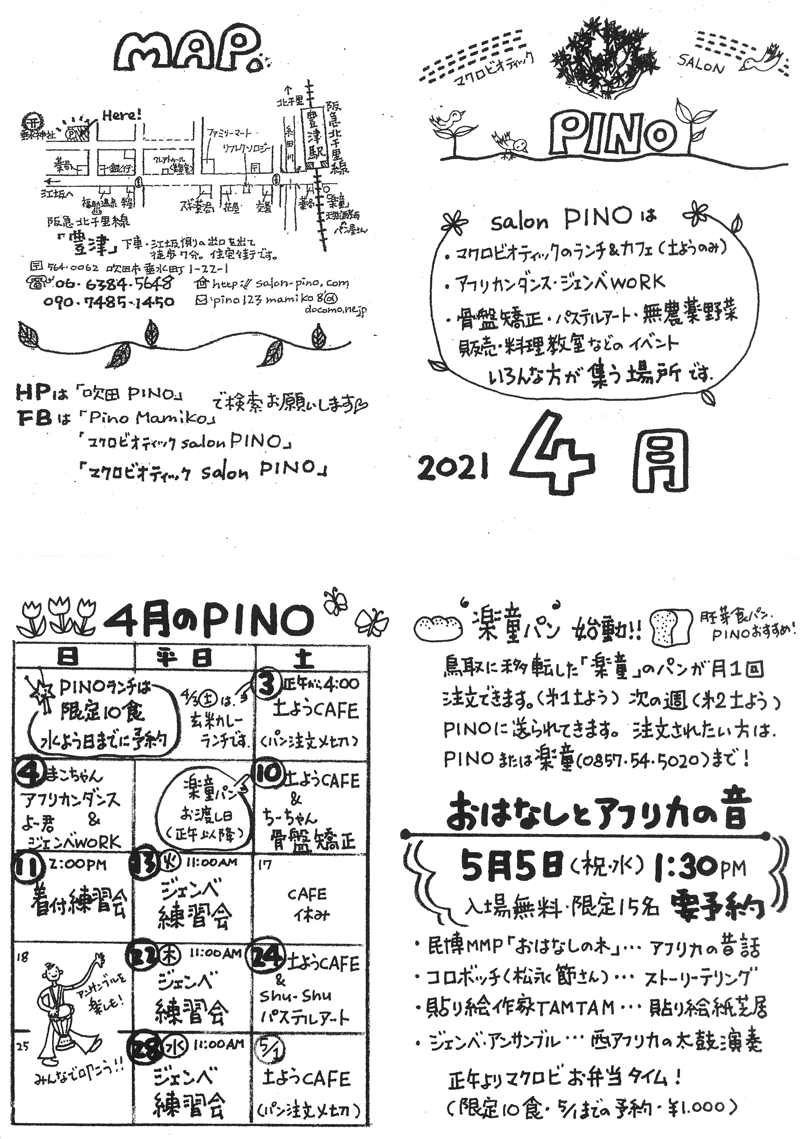 MAP.
Here!
北千里
豊津駅
阪急北千里線
糸田川
ファミリーマート
リフレクソロジー
垂水神社
薬局
銀行
江坂へ
花屋
薬局
楽童
パン屋さん
阪急北千里線
「豊津」下車・江坂側の出口を出て
徒歩7分。住宅街です。
〒564-0062 吹田市垂水町1-22-1
☎06-6384-5648 http://salon-pino.com
090-7485-1450 ✉pino123mamiko8@
docomo.ne.jp
HPは「吹田PINO」
FBは「Pino Mamiko」で検索お願いします♡
「マクロビオティック salon PINO」
「マクロビオティック salon PINO」
マクロビオティック SALON
PINO
salon PINOは
・マクロビオティックのランチ&カフェ(土ようのみ)
・アフリカンダンス・ジェンベWORK
・骨盤矯正・パステルアート・無農薬野菜
販売・料理教室などの イベント
いろんな方が集う場所です.
2021 4月
4月のPINO
日 平日 土
PINOランチは
限定10食
水よう日までに予約
4/3(土)は、
玄米カレー
ランチです。
3 正午から4:00
土ようCAFE
(パン注文〆切)
4 まこちゃん
アフリカンダンス
よー君 &
ジェンベWORK
楽童パン
お渡し日
(正午以降)
10 土ようCAFE
&
ちーちゃん
骨盤矯正
11 2:00PM
着付練習会
13 火 11:00AM
ジェンベ
練習会
17
CAFE
休み
18
アンサンブルを
楽しも!
22 木 11:00AM
ジェンベ
練習会
24 土ようCAFE
&
shu-shu
パステルアート
25
みんなで叩こう!!
28 水 11:00AM
ジェンベ
練習会
5/1
土ようCAFE
(パン注文〆切)
"楽童パン" 始動!!
胚芽食パン.
PINOおすすめ!
鳥取に移転した「楽童」のパンが月1回
注文できます。(第1土よう) 次の週(第2土よう)
PINOに送られてきます。注文されたい方は、
PINOまたは楽童(0857-54-5020)まで!
おはなしとアフリカの音
5月5日(祝・水) 1:30PM
入場無料・限定15名 要予約
・民博MMP「おはなしの木」… アフリカの昔話
・コロボッチ(松永節さん)… ストーリーテリング
・貼り絵作家TAMTAM… 貼り絵紙芝居
・ジェンベ・アンサンブル… 西アフリカの太鼓演奏
正午よりマクロビお弁当タイム!
(限定10食・5/1までの予約・¥1.000)